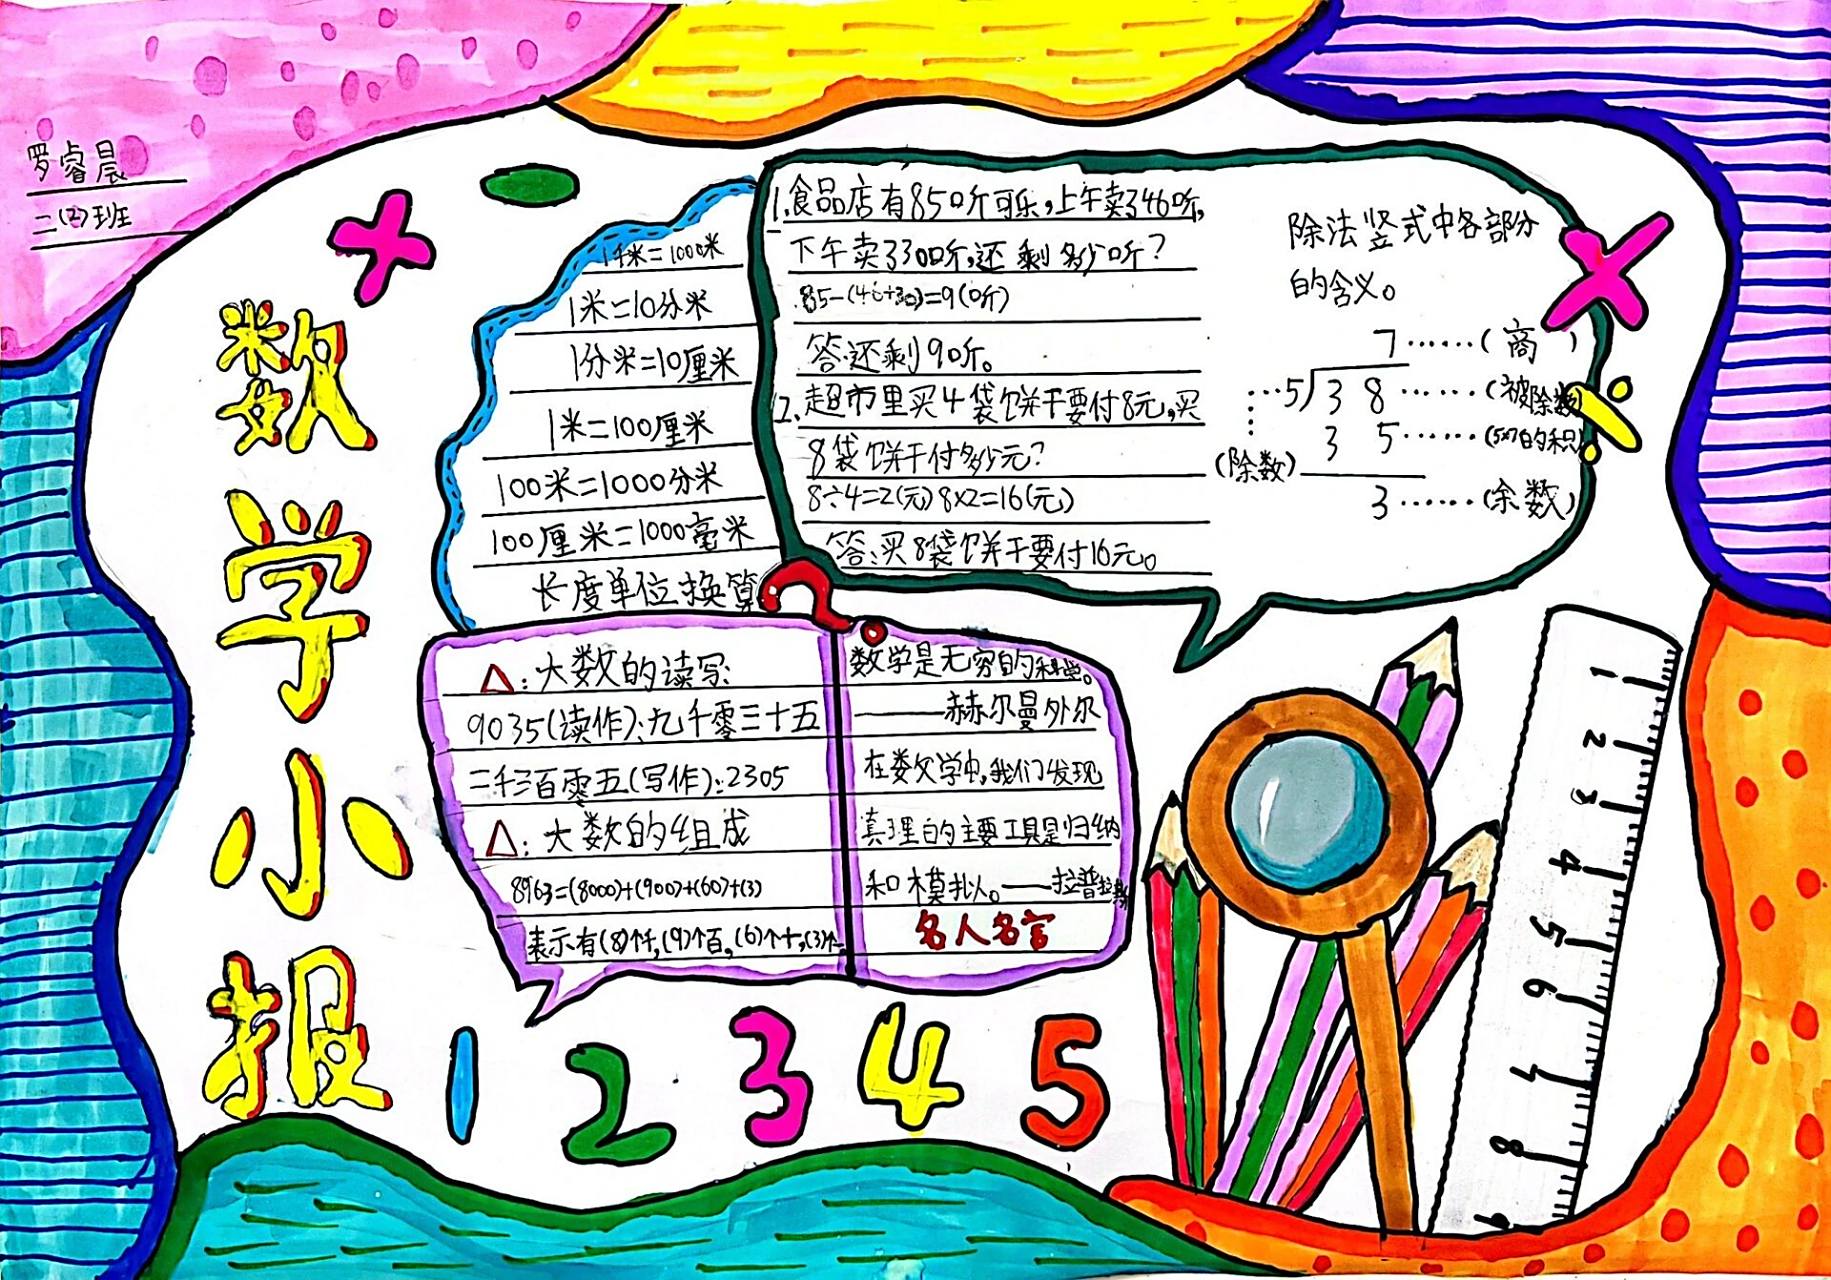 罗睿晨
二(2)班
数学小报
1千米=1000米
1米=10分米
1分米=10厘米
1米=100厘米
100米=1000分米
100厘米=1000毫米
长度单位换算
1.食品店有85听可乐,上午卖了46听,
下午卖了30听,还剩多少听?
85-(46+30)=9(听)
答还剩9听。
2.超市里买4袋饼干要付8元,买
8袋饼干付多少元?
8÷4=2(元) 8×2=16(元)
答:买8袋饼干要付16元。
除法竖式中各部分
的含义。
7……(商)
…5 38……(被除数)
35……(5×7的积)
(除数)
3……(余数)
△:大数的读写:
9035(读作):九千零三十五
二千三百零五(写作):2305
△:大数的组成
8963=(8000)+(900)+(60)+(3)
表示有(8)个千,(9)个百,(6)个十,(3)个一
数学是无穷的科学。
——赫尔曼外尔
在数学中,我们发现
真理的主要工具是归纳
和模拟。——拉普拉斯
名人名言
1 2 3 4 5
1
2
3
4
5
6
7
8
9